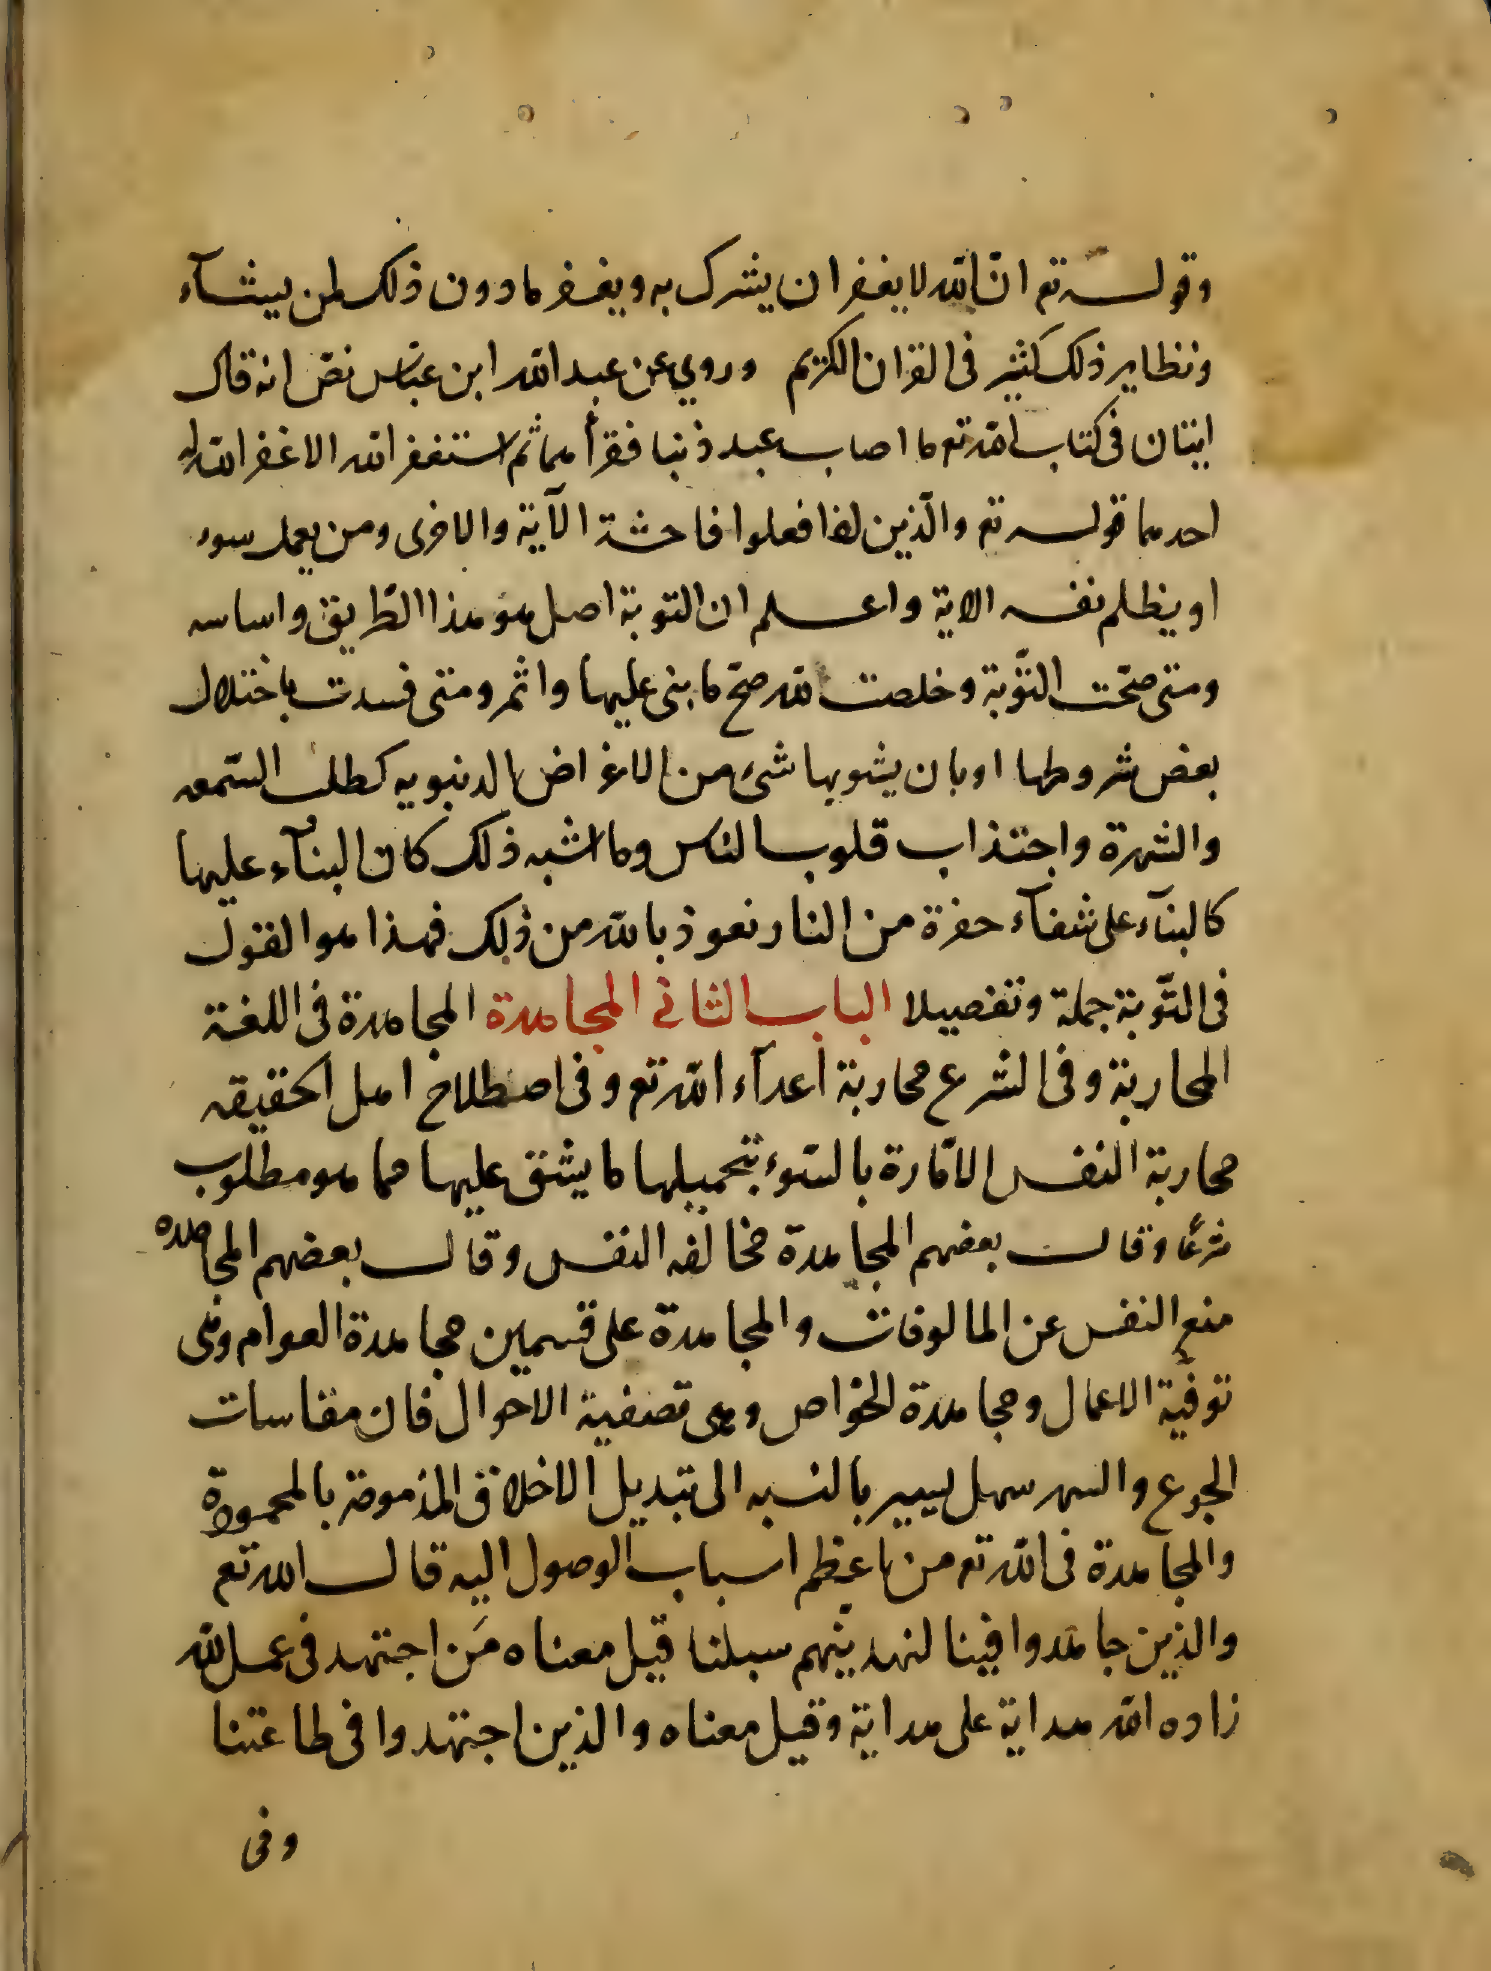 وقوله تع ان الله لا يغفر ان يشرك به ويغفر ما دون ذلك لمن يشآء
ونظاير ذلك كثير فى القران الكريم وروي عن عبد الله ابن عباس انه قال
ايتان فى كتاب الله تع ما اصاب عبد ذنبا فقرأهما ثم استغفر الله الا غفر الله له
احدهما قوله تع والذين اذا فعلوا فاحشة الآية والاخرى ومن يعمل سوء
او يظلم نفسه الاية واعلم ان التوبة اصل هذا الطريق واساسه
ومتى صحّت التوّبة وخلصت لله صحّ ما بنى عليها واثمر ومتى فسدت باختلال
بعض شروطها او بان يشوبها شئ من الاغراض الدنيويه كطلب السّمعه
والشهرة واجتذاب قلوب الناس وما اشبه ذلك كان البنآء عليها
كالبنآء على شفآء حفرة من النار نعوذ بالله من ذلك فهذا هو القول
فى التوّبة جملة وتفصيلا الباب الثانى المجاهدة المجاهدة فى اللغة
المحاربة وفى الشرع محاربة أعدآء الله تع وفى اصطلاح اهل الحقيقه
محاربة النفس الامّارة بالسّوء بتحميلها ما يشق عليها مما هو مطلوب
شرعًا وقال بعضهم المجاهدة مخالفه النفس وقال بعضهم المجاهده
منع النفس عن المالوفات والمجاهدة على قسمين مجاهدة العوام وهى
توفيّة الاعمال ومجاهدة الخواص وهى تصفية الاحوال فان مقاسات
الجوع والسهر سهل يسير بالنسبه الى تبديل الاخلاق المذمومة بالمحمودة
والمجاهدة فى الله تع من اعظم اسباب الوصول اليه قال الله تع
والذين جاهدوا فينا لنهدينّهم سبلنا قيل معناه مَن اجتهد فى عمل لله
زاده الله هداية على هداية وقيل معناه والذين اجتهدوا فى طاعتنا
وفى